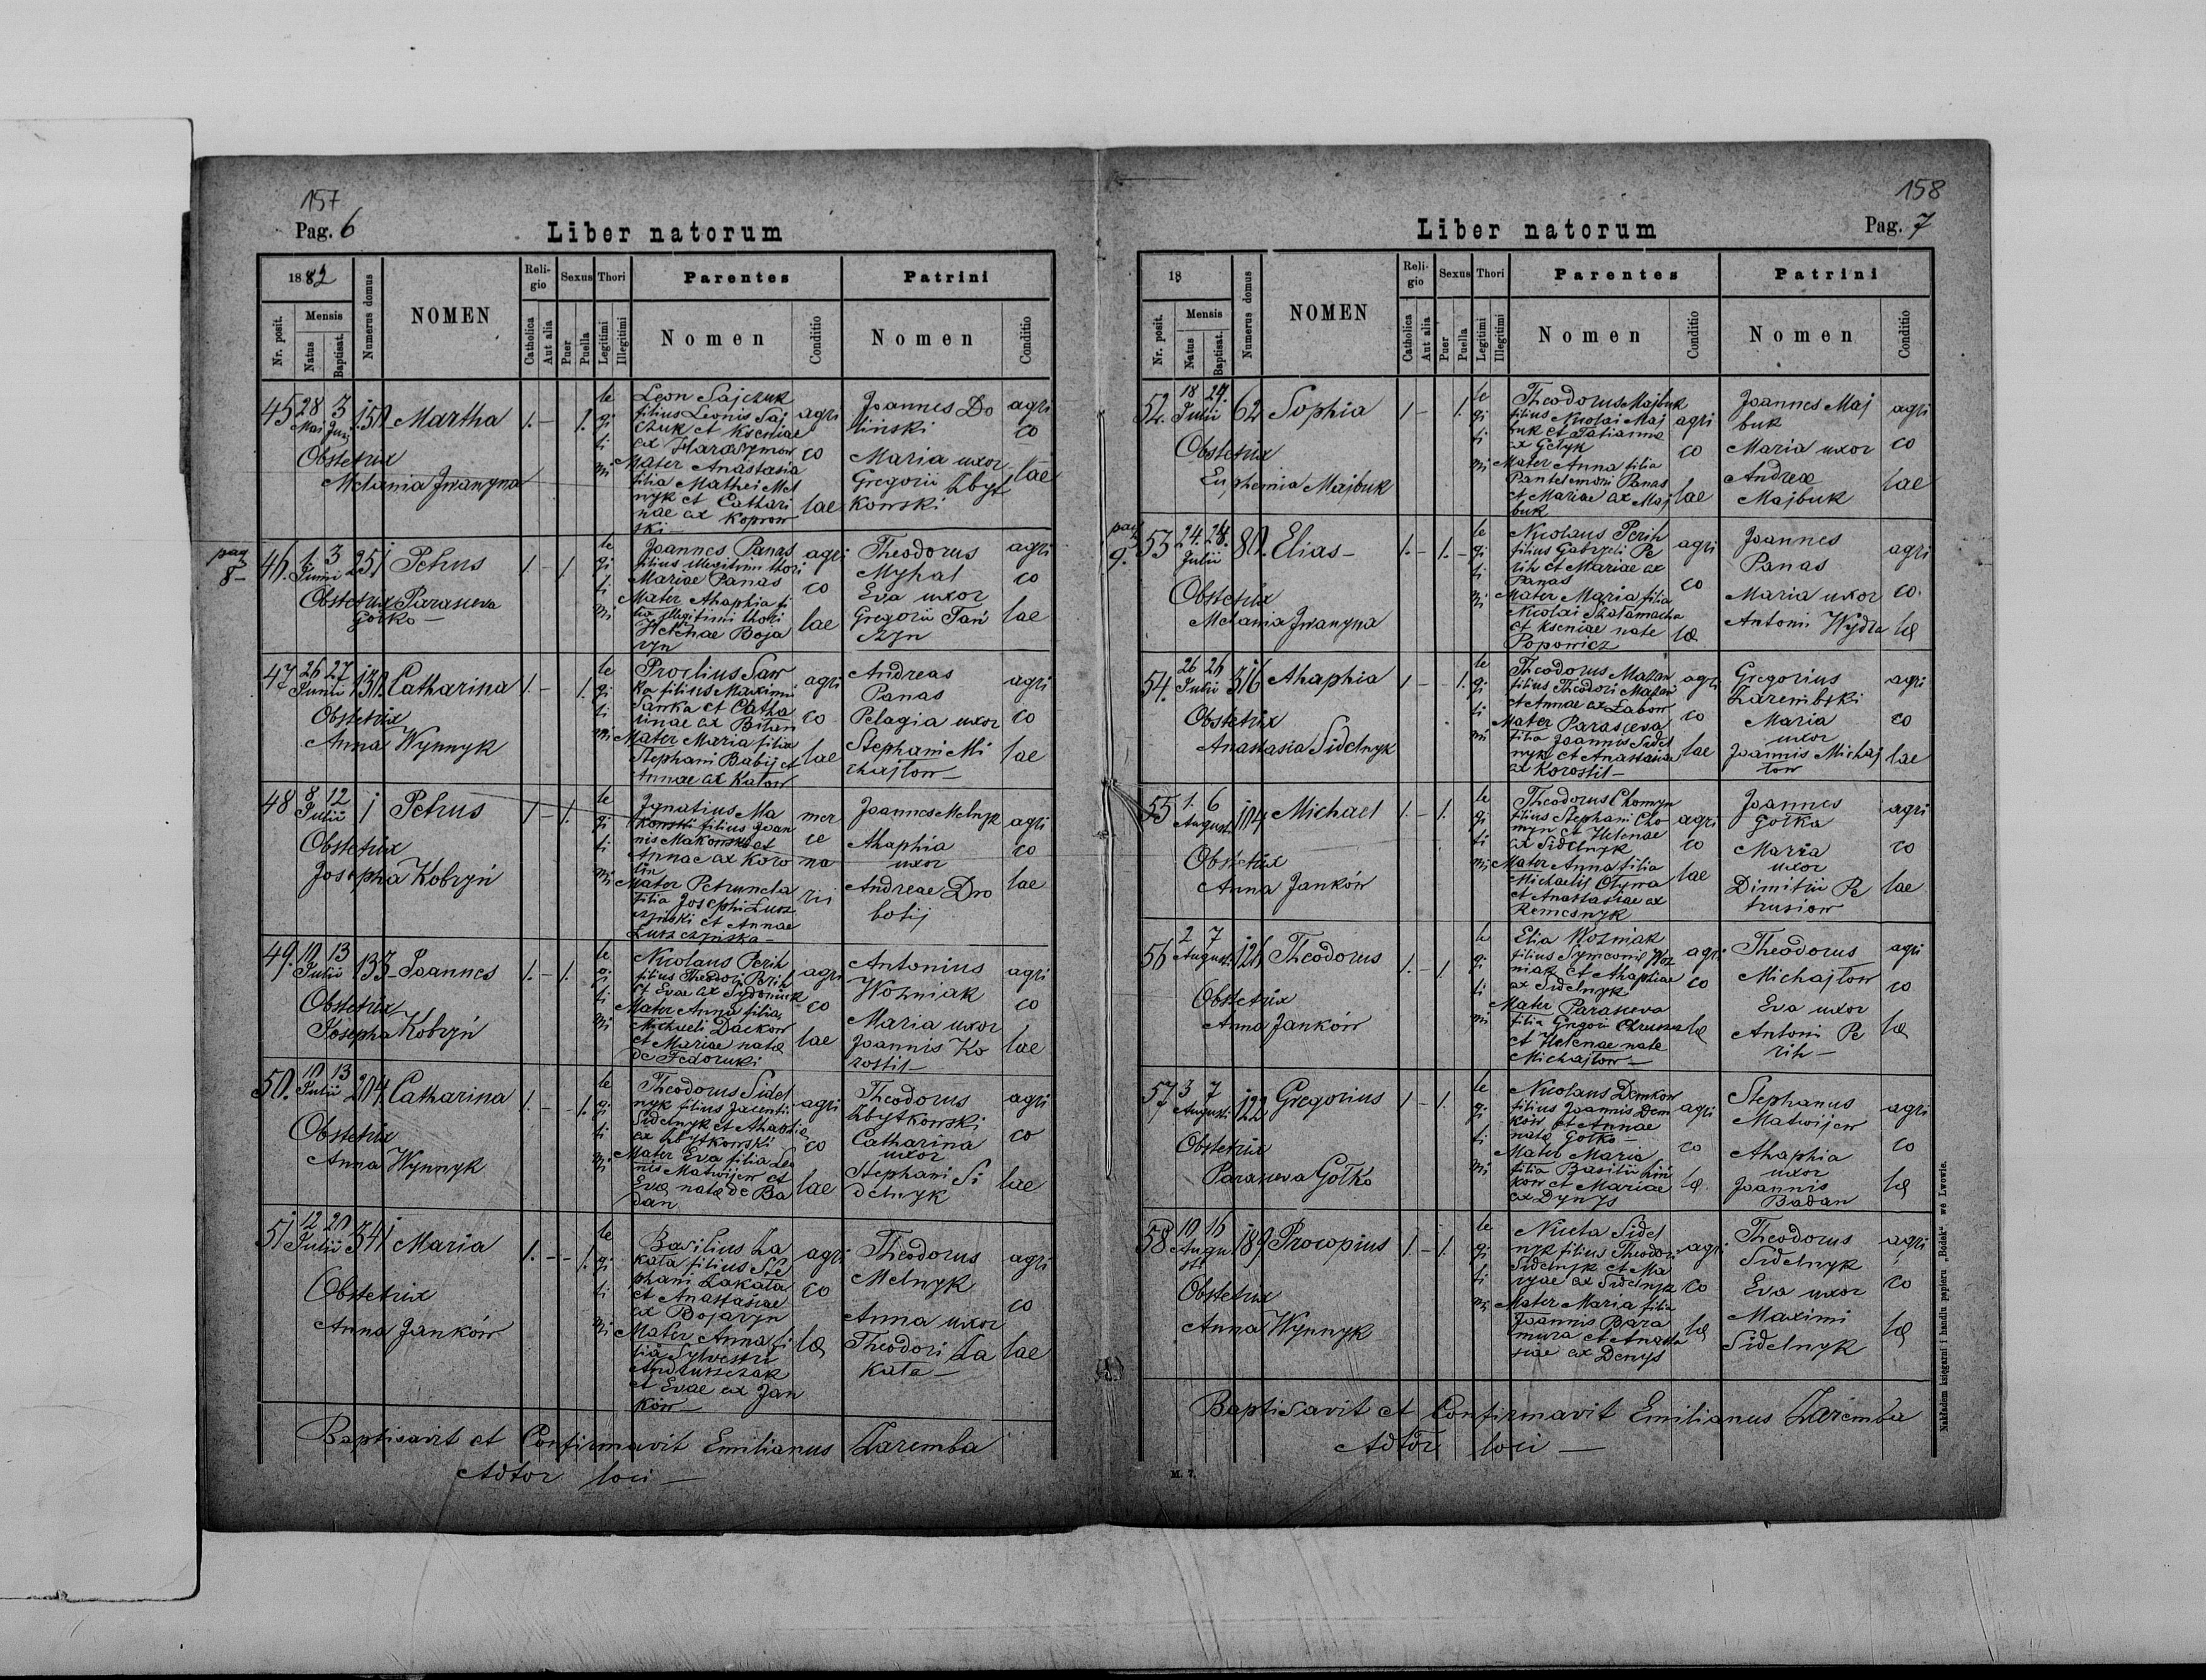 157
Pag. 6
Liber natorum
1882
Nr. posit.
Mensis
Natus
Baptisat.
Numerus domus
NOMEN
Religio
Catholica
Aut alia
Sexus
Puer
Puella
Thori
Legitimi
Illegitimi
Parentes
Nomen
Conditio
Patrini
Nomen
Conditio
45 28 3 150 Martha 1. - 1.
Mai Junj
Obstetrix
Melania Iwanyna
legitimi
Leon Sajczuk
filius Leonis Saj
czuk et Kseniae
ex Harasymow
Mater Anastasia
filia Mathei Mel
nyk et Cathari
nae ex Koprow
ski
agri
co
lae
Joannes Do
linski
Maria uxor
Gregorii Zbyt
kowski
agri
co
lae
pag
8-
46. 1. 3 251 Petrus 1. - 1
Junii
Obstetrix Parasceva
Gołko -
legitimi
Joannes Panas
filius illegitimi thori
Mariae Panas
Mater Ahaphia fi
lia illegitimi thori
Helenae Boja
ryn
agri
co
lae
Theodorus
Myhal
Eva uxor
Gregorii Tań
czyn
agri
co
lae
47 26 27 130. Catharina 1. - 1.
Junii
Obstetrix
Anna Wynnyk
legitimi
Proclius Saw
ka filius Maximi
Sawka et Catha
rinae ex Bitan
Mater Maria filia
Stephani Babij et
Annae ex Katow
agri
co
lae
Andreas
Panas
Pelagia uxor
Stephani Mi
chajlow -
agri
co
lae
48 8 12 1 Petrus 1. - 1.
Julii
Obstetrix
Josepha Kobryń
legitimi
Ignatius Ma
konski filius Joan
nis Makonski et
Annae ex Koro
lin
Mater Petrunela
filia Josephi Łusz
czynski et Annae
Łuszczynska -
mer
ce
na
rii
Joannes Melnyk
Ahaphia
uxor
Andreae Dro
botij
agri
co
lae
49. 10 13 133 Joannes 1. - 1.
Julii
Obstetrix
Josepha Kobryń
legitimi
Nicolaus Perih
filius Theodori Perih
et Evae ex Sydoniuk
Mater Anna filia
Michaeli Dackow
et Mariae natae
de Fedoruki
agri
co
lae
Antonius
Wozniak
Maria uxor
Joannis Ko
rostil -
agri
co
lae
50. 10 13 204 Catharina 1. - 1.
Julii
Obstetrix
Anna Wynnyk
legitimi
Theodorus Sidel
nyk filius Jacenti
Sidelnyk et Ahaphia
ex Zbytkowski
Mater Eva filia Leo
nis Matwijew et
Evae natae de Ba
dan
agri
co
lae
Theodorus
Zbytkowski
Catharina
uxor
Stephani Si
delnyk
agri
co
lae
51 12 20 341 Maria 1. - - 1.
Julii
Obstetrix
Anna Janków
legitimi
Basilius Ła
kata filius Ste
phani Łakata
et Anastasiae
ex Bojaryn
Mater Anna fi
lia Sylvestri
Andruszczak
et Evae ex Jan
kow -
agri
co
lae
Theodorus
Melnyk
Anna uxor
Theodori Ła
kata -
agri
co
lae
Baptisavit et Confirmavit Emilianus Zaremba
Adtor loci -
158
Pag. 7
Liber natorum
18
Nr. posit.
Mensis
Natus
Baptisat.
Numerus domus
NOMEN
Religio
Catholica
Aut alia
Sexus
Puer
Puella
Thori
Legitimi
Illegitimi
Parentes
Nomen
Conditio
Patrini
Nomen
Conditio
52. 18 24. 62 Sophia 1 - 1.
Julii
Obstetrix
Euphemia Majbuk
legitimi
Theodorus Majbuk
filius Nicolai Maj
buk et Tatianna
ex Getyk
Mater Anna filia
Pantelemoni Panas
et Mariae ex Maj
buk
agri
co
lae
Joannes Maj
buk
Maria uxor
Andreae
Majbuk
agri
co
lae
pag
9.
53 24. 28. 80. Elias - 1. - 1. -
Julii
Obstetrix
Melania Iwanyna
legitimi
Nicolaus Perih
filius Gabryeli Pe
rih et Mariae ex
Panas
Mater Maria filia
Nicolai Szalamacha
et Kseniae nate
Popowicz
agri
co
lae
Joannes
Panas
Maria uxor
Antoni Wydra
agri
co.
lae
54. 26 26 316 Ahaphia 1 - 1.
Julii
Obstetrix
Anastasia Sidelnyk
legitimi
Theodorus Matan
filius Theodori Matan
et Annae ex Labow
Mater Parasceva
filia Joannis Sidel
nyk et Anastasia
ex Korostil -
agri
co
lae
Gregorius
Zarembski
Maria
uxor
Joannis Michaj
low
agri
co
lae
55 1. 6 104 Michael 1. - 1.
August.
Obstetrix
Anna Janków
legitimi
Theodorus Chomyn
filius Stephani Cho
myn et Helenae
ex Sidelnyk
Mater Anna filia
Michaelis Olywa
et Anastasiae ex
Remesnyk
agri
co
lae
Joannes
Gotka
Maria
uxor
Dimitrii Pe
trusiow
agri
co
lae
56 2 7 126 Theodorus 1. - 1.
August.
Obstetrix
Anna Janków
legitimi
Elia Wozniak
filius Symeonis Woz
niak et Ahaphiae
ex Sidelnyk
Mater Parasceva
filia Gregorii
et Helenae nate
Michajlow -
agri
co
lae
Theodorus
Michajlow
Eva uxor
Antoni Pe
rih -
agri
co
lae
57 3 7 122 Gregorius 1 - 1.
Augusti
Obstetrix
Parasceva Gołko
legitimi
Nicolaus Demkow
filius Joannis Dem
ków et Annae
natae Gołko -
Mater Maria
filia Basilii Hń
kow et Mariae
ex Dynys
agri
co
lae
Stephanus
Matwijew
Ahaphia
uxor
Joannis
Badan
agri
co
lae
58 10 16 189 Procopius 1. - 1.
Augu
sti
Obstetrix
Anna Wynnyk
legitimi
Niceta Sidel
nyk filius Theodori
Sidelnyk et Ma
ryae ex Sidelnyk
Mater Maria filia
Joannis Bara
mura et Anasta
siae ex Denys
agri
co
lae
Theodorus
Sidelnyk
Eva uxor
Maximi
Sidelnyk
agri
co
lae
Baptisavit et Confirmavit Emilianus Zaremba
Adtor loci -
M. 7.
Nakładem księgarni i handlu papieru „Bodek" we Lwowie.